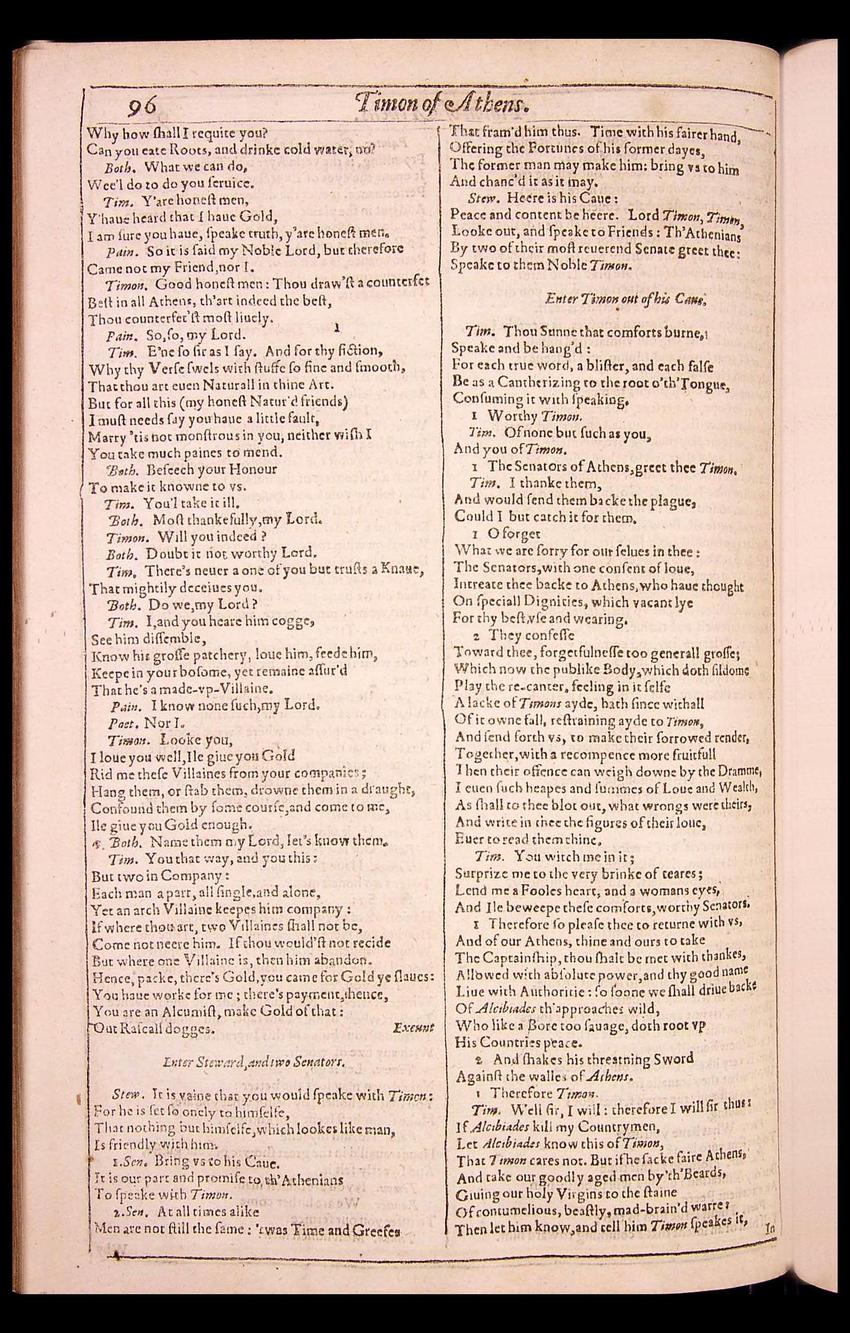 96
Timon of Athens.
Why how ſhall I requite you?
Can you eate Roots, and drinke cold water, no?
Both. What we can do,
Wee'l do to do you ſeruice.
Tim. Y'are honeſt men,
Y'haue heard that I haue Gold,
I am ſure you haue, ſpeake truth, y'are honeſt men.
Pain. So it is ſaid my Noble Lord, but therefore
Came not my Friend, nor I.
Timon. Good honeſt men: Thou draw'ſt a counterfet
Beſt in all Athens, th'art indeed the beſt,
Thou counterfet'ſt moſt liuely.
Pain. So, ſo, my Lord.
Tim. E'ne ſo ſir as I ſay. And for thy fiction,
Why thy Verſe ſwels with ſtuffe ſo fine and ſmooth,
That thou art euen Naturall in thine Art.
But for all this (my honeſt Natur'd friends)
I muſt needs ſay you haue a little fault,
Marry 'tis not monſtrous in you, neither wiſh I
You take much paines to mend.
Both. Beſeech your Honour
To make it knowne to vs.
Tim. You'l take it ill.
Both. Moſt thankefully, my Lord.
Timon. Will you indeed?
Both. Doubt it not worthy Lord.
Tim. There's neuer a one of you but truſts a Knaue,
That mightily deceiues you.
Both. Do we, my Lord?
Tim. I, and you heare him cogge,
See him diſſemble,
Know his groſſe patchery, loue him, feede him,
Keepe in your boſome, yet remaine aſſur'd
That he's a made-vp-Villaine.
Pain. I know none ſuch, my Lord.
Poet. Nor I.
Timon. Looke you,
I loue you well, Ile giue you Gold
Rid me theſe Villaines from your companies;
Hang them, or ſtab them, drowne them in a draught,
Confound them by ſome courſe, and come to me,
Ile giue you Gold enough.
Both. Name them my Lord, let's know them.
Tim. You that way, and you this:
But two in Company:
Each man apart, all ſingle, and alone,
Yet an arch Villaine keepes him company:
If where thou art, two Villaines ſhall not be,
Come not neere him. If thou would'ſt not recide
But where one Villaine is, then him abandon.
Hence, packe, there's Gold, you came for Gold ye ſlaues:
You haue worke for me; there's payment, hence,
You are an Alcumiſt, make Gold of that:
Out Raſcall dogges. Exeunt
Enter Steward, and two Senators.
Stew. It is vaine that you would ſpeake with Timon:
For he is ſet ſo onely to himſelfe,
That nothing but himſelfe, which lookes like man,
Is friendly with him.
1. Sen. Bring vs to his Caue.
It is our part and promiſe to th'Athenians
To ſpeake with Timon.
2. Sen. At all times alike
Men are not ſtill the ſame: 'twas Time and Greefes
That fram'd him thus. Time with his fairer hand,
Offering the Fortunes of his former dayes,
The former man may make him: bring vs to him
And chanc'd it as it may.
Stew. Heere is his Caue:
Peace and content be heere. Lord Timon, Timon,
Looke out, and ſpeake to Friends: Th'Athenians
By two of their moſt reuerend Senate greet thee:
Speake to them Noble Timon.
Enter Timon out of his Caue.
Tim. Thou Sunne that comforts burne,
Speake and be hang'd:
For each true word, a bliſter, and each falſe
Be as a Cantherizing to the root o'th'Tongue,
Conſuming it with ſpeaking.
1 Worthy Timon.
Tim. Of none but ſuch as you,
And you of Timon.
1 The Senators of Athens, greet thee Timon.
Tim. I thanke them,
And would ſend them backe the plague,
Could I but catch it for them.
1 O forget
What we are ſorry for our ſelues in thee:
The Senators, with one conſent of loue,
Intreate thee backe to Athens, who haue thought
On ſpeciall Dignities, which vacant lye
For thy beſt vſe and wearing.
2 They confeſſe
Toward thee, forgetfulneſſe too generall groſſe;
Which now the publike Body, which doth ſildome
Play the re-canter, feeling in it ſelfe
A lacke of Timons ayde, hath ſince withall
Of it owne fall, reſtraining ayde to Timon,
And ſend forth vs, to make their ſorrowed render,
Together, with a recompence more fruitfull
Then their offence can weigh downe by the Dramme,
I euen ſuch heapes and ſummes of Loue and Wealth,
As ſhall to thee blot out, what wrongs were theirs,
And write in thee the figures of their loue,
Euer to read them thine.
Tim. You witch me in it;
Surprize me to the very brinke of teares;
Lend me a Fooles heart, and a womans eyes,
And Ile beweepe theſe comforts, worthy Senators.
1 Therefore ſo pleaſe thee to returne with vs,
And of our Athens, thine and ours to take
The Captainſhip, thou ſhalt be met with thankes,
Allowed with abſolute power, and thy good name
Liue with Authoritie: ſo ſoone we ſhall driue backe
Of Alcibiades th'approaches wild,
Who like a Bore too ſauage, doth root vp
His Countries peace.
2 And ſhakes his threatning Sword
Againſt the walles of Athens.
1 Therefore Timon.
Tim. Well ſir, I will: therefore I will ſir thus:
If Alcibiades kill my Countrymen,
Let Alcibiades know this of Timon,
That Timon cares not. But if he ſacke faire Athens,
And take our goodly aged men by'th'Beards,
Giuing our holy Virgins to the ſtaine
Of contumelious, beaſtly, mad-brain'd warre:
Then let him know, and tell him Timon ſpeakes it,
In